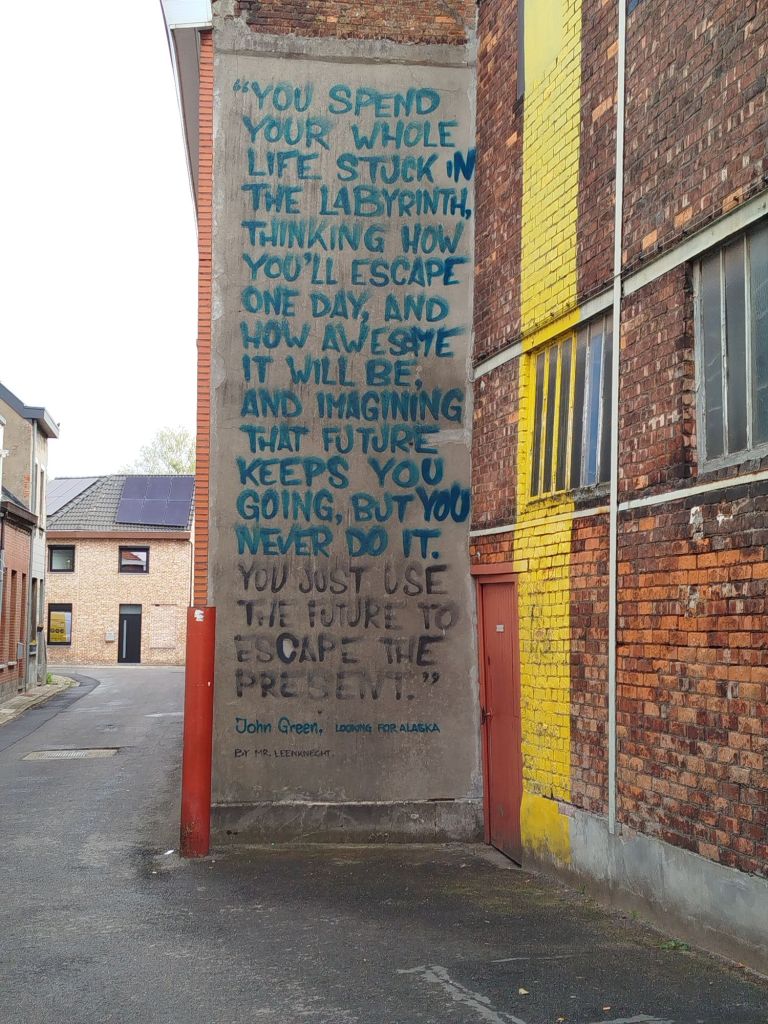 “YOU SPEND
YOUR WHOLE
LIFE STUCK IN
THE LABYRINTH,
THINKING HOW
YOU'LL ESCAPE
ONE DAY, AND
HOW AWESOME
IT WILL BE,
AND IMAGINING
THAT FUTURE
KEEPS YOU
GOING, BUT YOU
NEVER DO IT.
YOU JUST USE
THE FUTURE TO
ESCAPE THE
PRESENT.”
John Green, LOOKING FOR ALASKA
BY MR. LEENKNECHT.